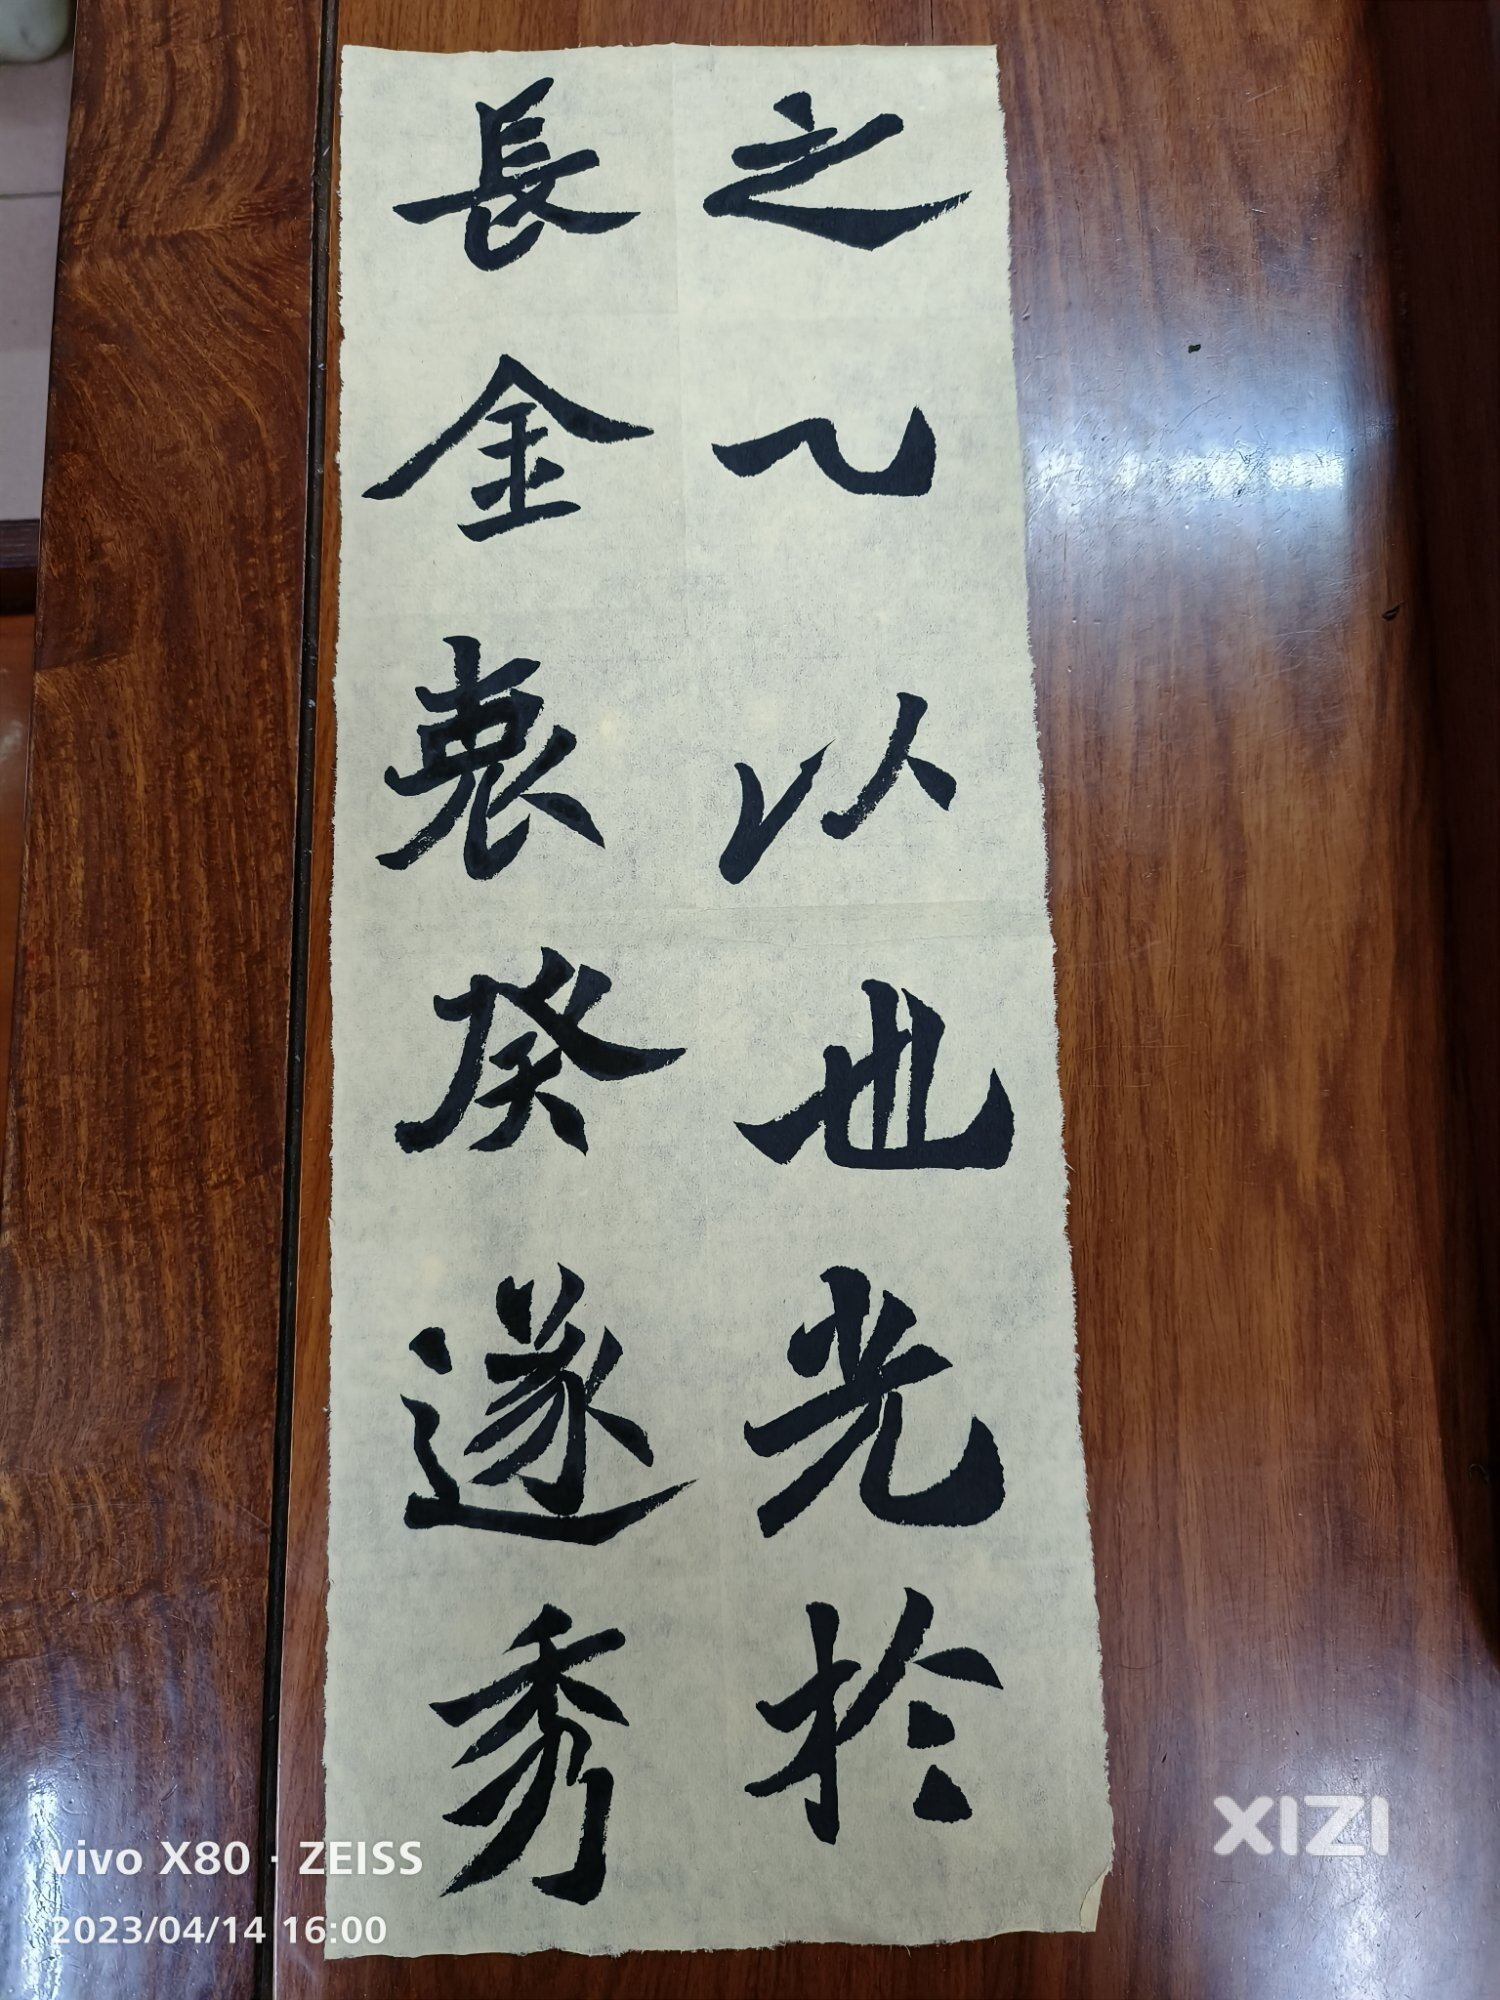 之乙以也光於
長金裵癸遂秀
XIZI
vivo X80 · ZEISS
2023/04/14 16:00